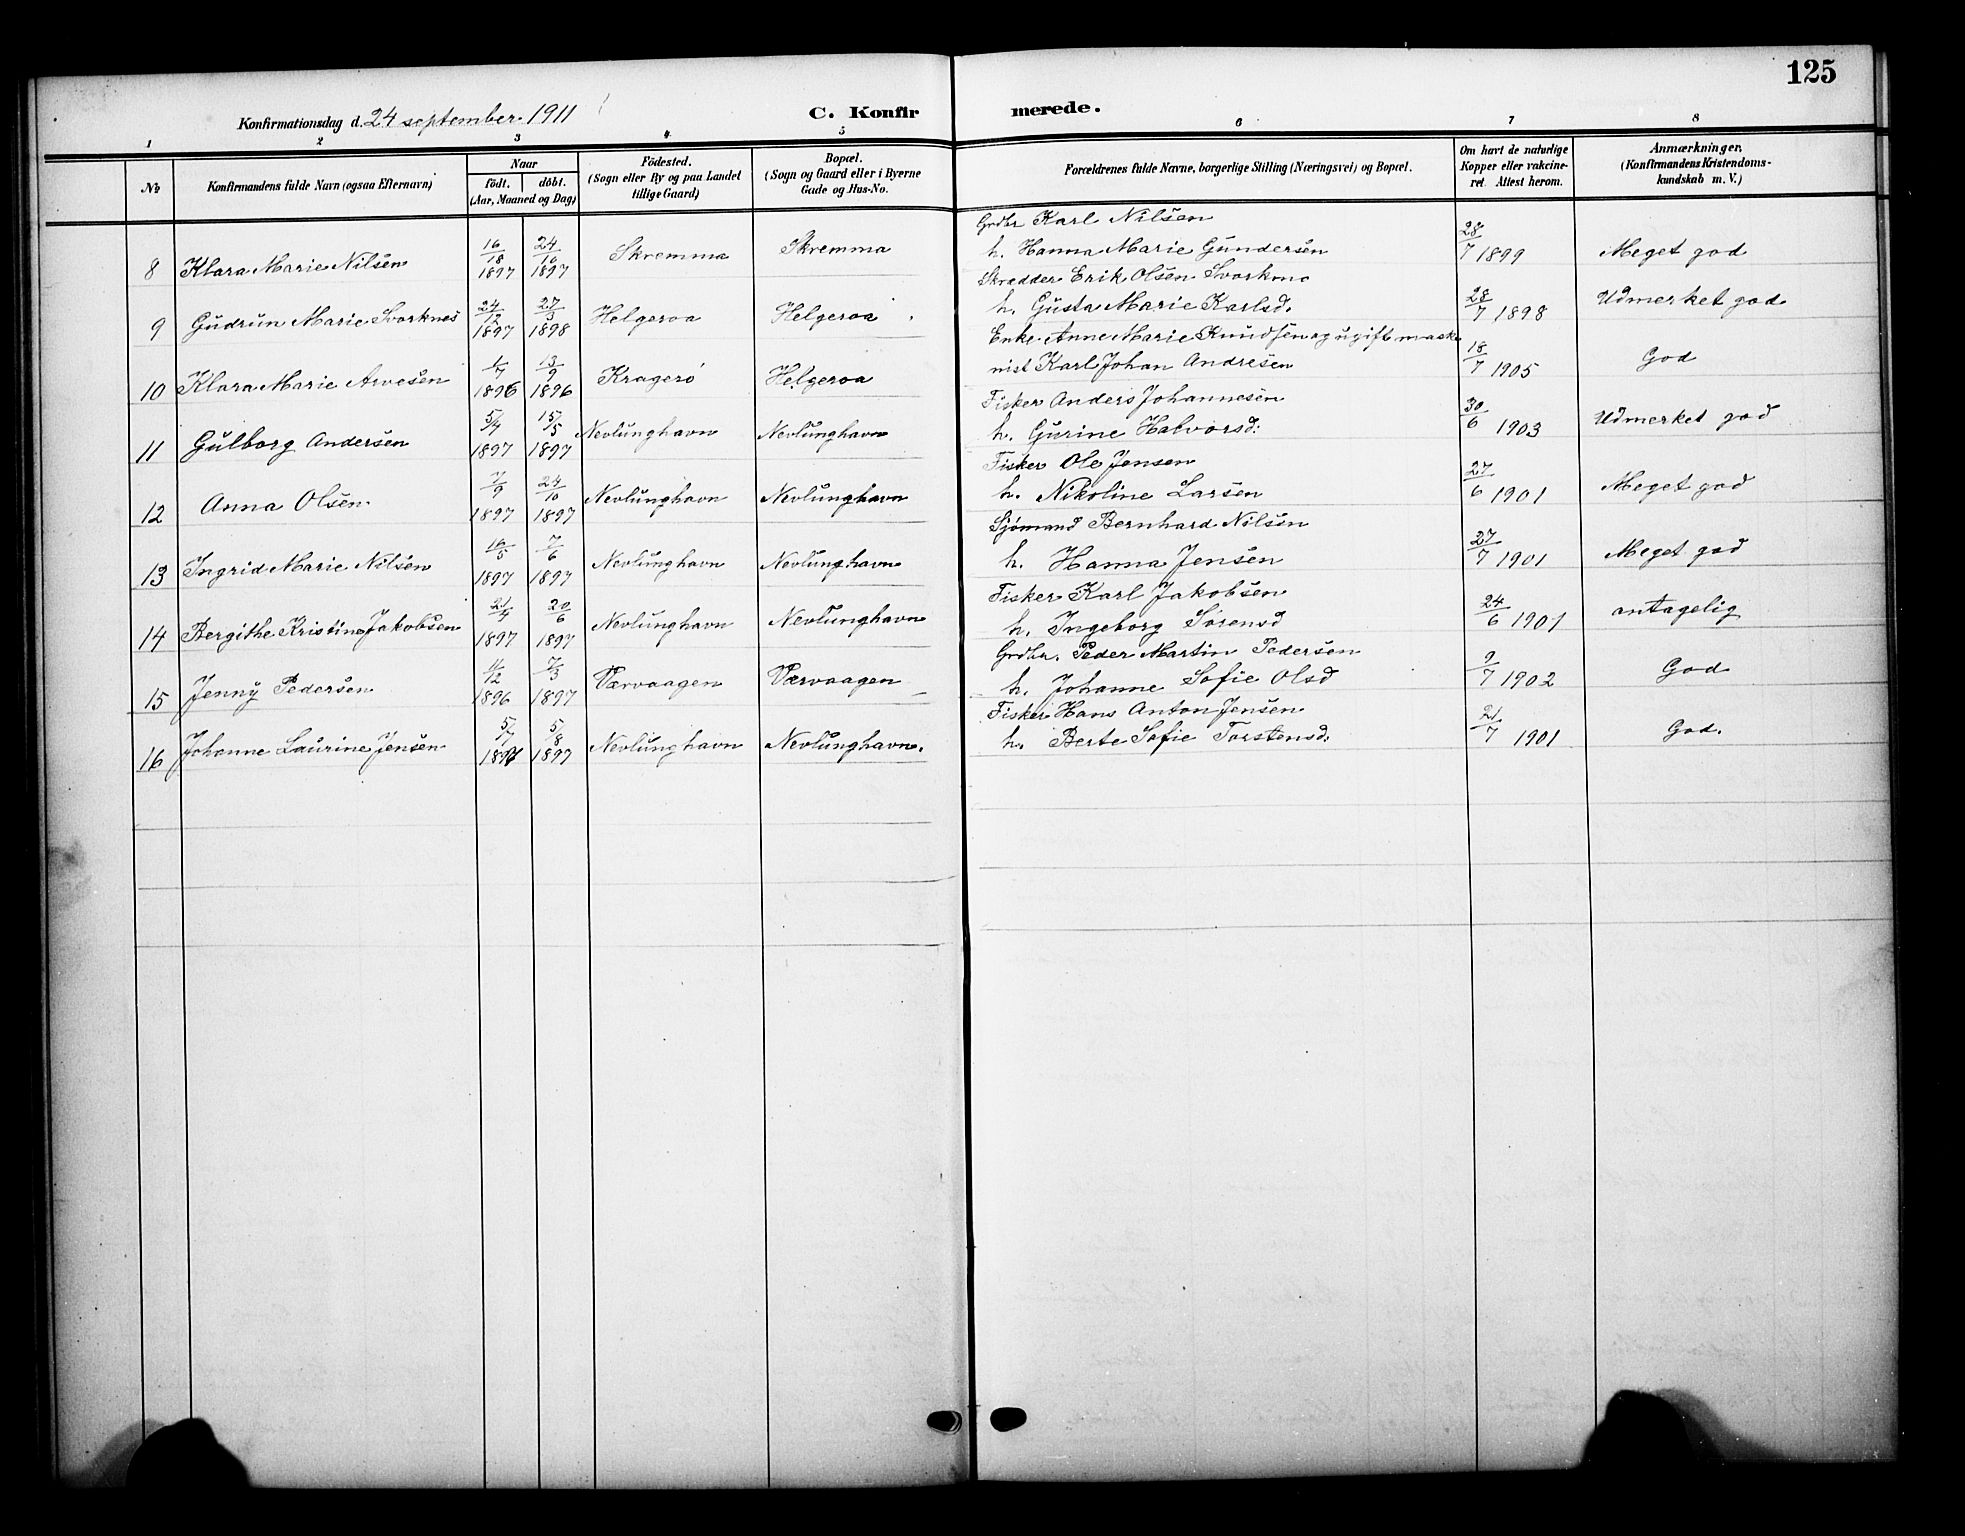 125
Konfirmationsdag d. 24 september 1911
C. Konfirmerede.
1 2 3 4 5 6 7 8
No
Konfirmandens fulde Navn (ogsaa Efternavn)
Naar
født. døbt.
(Aar, Maaned og Dag)
Födested.
(Sogn eller By og paa Landet
tillige Gaard)
Bopæl.
(Sogn og Gaard eller i Byerne
Gade og Hus-No.
Forældrenes fulde Navne, borgerlige Stilling (Næringsvei) og Bopæl.
Om havt de naturlige
Kopper eller vakcine-
ret. Attest herom.
Anmærkninger.
(Konfirmandens Kristendoms-
kundskab m. V.)
Grdbr Karl Nilsen
8 Klara Marie Nilsen 16/18 1897 24/10 1897 Skremma Skremma h. Hanna Marie Gundersen 28/7 1899 Meget god
Skrædder Erik Olsen
9 Gudrun Marie Svorknes 24/12 1897 27/3 1898 Helgeroa Helgeroa h. Gusta Marie Karlsd. 28/7 1898 Udmerket god
Enke Anne Marie Knudsen og ugift maski
10 Klara Marie Arvesen 1/7 1896 13/9 1896 Kragerø Helgeroa nist Karl Johan Andresen 18/7 1905 God
Fisker Anders Johannesen
11 Gulborg Andersen 5/4 1897 15/5 1897 Nevlunghavn Nevlunghavn h. Gurine Halvorsd: 30/6 1903 Udmerket god
Fisker Ole Jensen
12 Anna Olsen 7/9 1897 24/10 1897 Nevlunghavn Nevlunghavn h. Nikoline Larsen 27/6 1901 Meget god
Sjømand Bernhard Nilsen
13 Ingrid Marie Nilsen 16/5 1897 7/6 1897 Nevlunghavn Nevlunghavn h. Hanna Jensen 27/7 1901 Meget god
Fisker Karl Jakobsen
14 Bergithe Kristine Jakobsen 21/4 1897 20/6 1897 Nevlunghavn Nevlunghavn h. Ingeborg Sørensd 24/6 1901 antagelig
Grdbr. Peder Martin Pedersen
15 Jenny Pedersen 11/12 1896 7/3 1897 Værvaagen Værvaagen h. Johanne Sofie Olsd 9/7 1902 God
Fisker Hans Anton Jensen
16 Johanne Laurine Jensen 5/7 1897 5/8 1897 Nevlunghavn Nevlunghavn. h. Berte Sofie Torstensd: 21/7 1901 God.